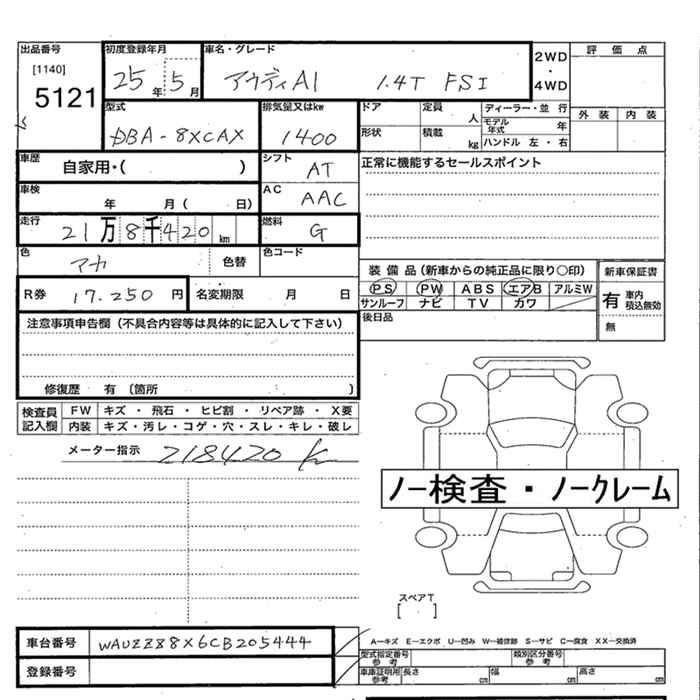 出品番号 初度登録年月 車名・グレード 評価点
[1140] 25年 5月 アウディA1 1.4T FSI 2WD・4WD
5121 外装 内装
型式 排気量又はkw ドア 定員 人 ディーラー・並行
DBA-8XCAX 1400 形状 積載 kg モデル年式 年
ハンドル 左・右
車歴 自家用・( ) シフト AT 正常に機能するセールスポイント
車検 年 月( 日) AC AAC
走行 21万8千420km 燃料 G
色 アカ 色替 色コード
装備品(新車からの純正品に限り○印) 新車保証書
R券 17.250円 名変期限 月 日 PS PW ABS エアB アルミW 有 車内積込無効
サンルーフ ナビ TV カワ 無
注意事項申告欄(不具合内容等は具体的に記入して下さい) 後日品
修復歴 有 〔箇所 〕
検査員記入欄 FW キズ・飛石・ヒビ割・リペア跡・X要
内装 キズ・汚レ・コゲ・穴・スレ・キレ・破レ
メーター指示 218420 k
ノー検査・ノークレーム
スペアT
[ ]
車台番号 WAUZZZ8X6CB205444 A−キズ E−エクボ U−凹み W−補修跡 S−サビ C−腐食 XX−交換済
型式指定番号 参考 類別区分番号 参考
登録番号 車庫証明用 参考 長さ cm 幅 cm 高さ cm